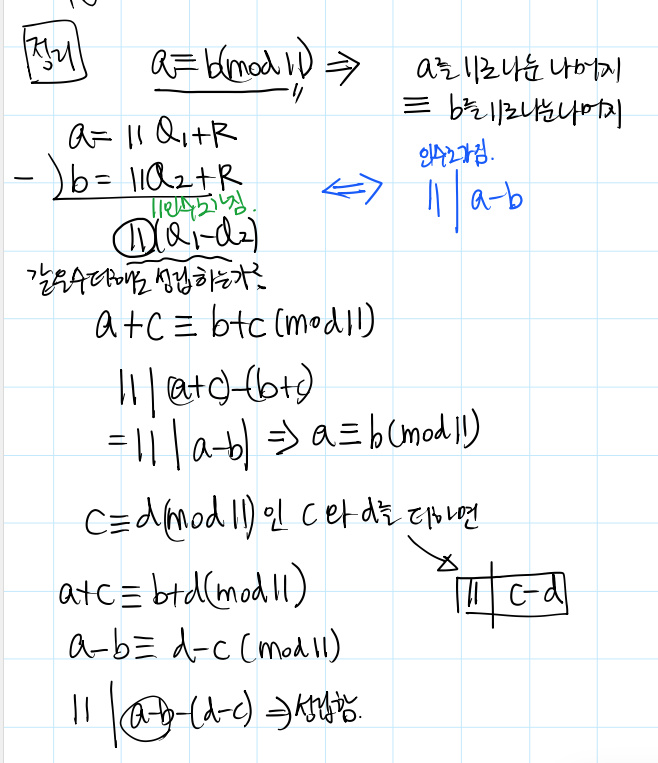 정리
a≡b(mod 11) ⇒ a를 11로 나눈 나머지
≡ b를 11로 나눈 나머지
a= 11 Q₁+R
-) b= 11Q₂+R
11 인수로 가짐.
11(Q₁-Q₂)
⇔ 인수로 가짐.
11 | a-b
같은 수 더해도 성립하는가?
a+c ≡ b+c (mod 11)
11 | (a+c)-(b+c)
= 11 | a-b ⇒ a≡b(mod 11)
c≡d(mod 11) 인 c와 d를 더하면
11 | c-d
a+c ≡ b+d(mod 11)
a-b ≡ d-c (mod 11)
11 | a-b-(d-c) ⇒ 성립함.